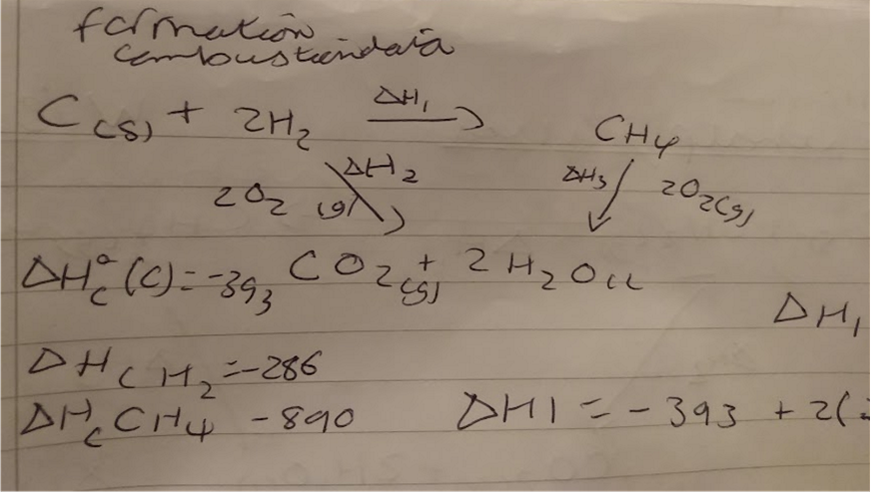 formation
combustion data
C(s) + 2H2 ΔH1 → CH4
2O2 (g) ΔH2 ΔH3 2O2(g)
ΔH°c (C) = -393 CO2(g) + 2H2O(l
ΔH1
ΔHc H2 = -286
ΔHc CH4 -890 ΔH1 = -393 + 2(